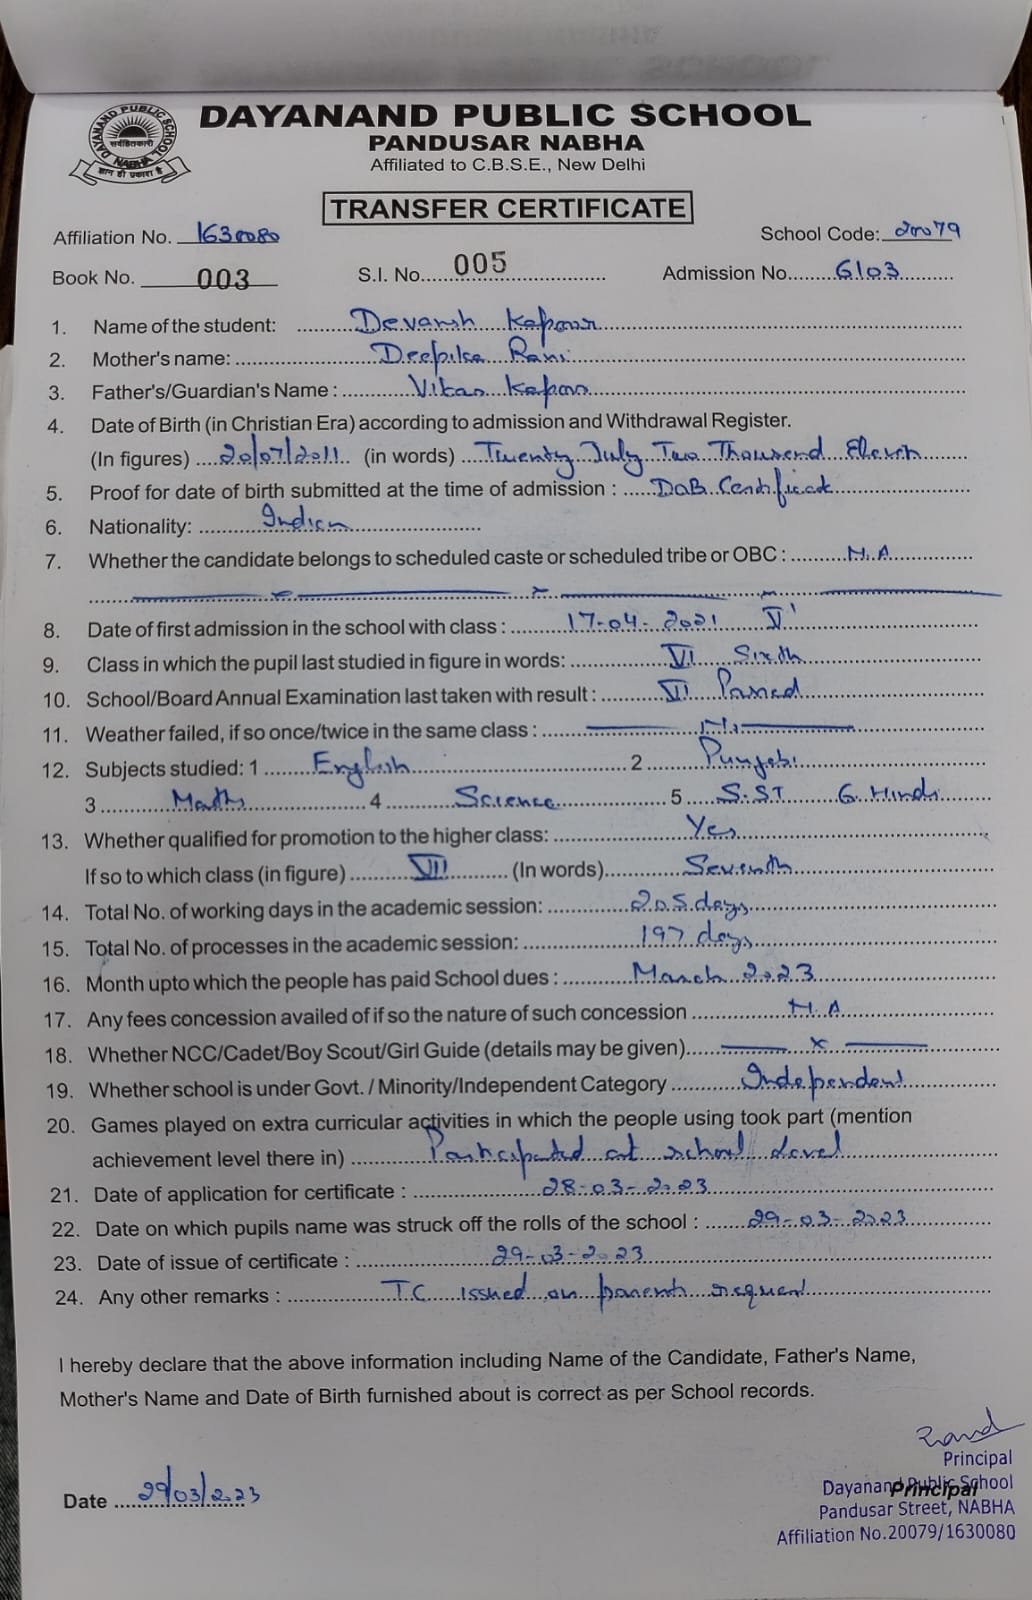 DAYANAND PUBLIC SCHOOL
PANDUSAR NABHA
Affiliated to C.B.S.E., New Delhi
DAYANAND PUBLIC SCHOOL
सर्वहितकारी
NABHA
ज्ञान ही प्रकाश है
TRANSFER CERTIFICATE
Affiliation No. 1630080 School Code: 20079
Book No. 003 S.I. No. 005 Admission No. 6103
1. Name of the student: Devansh Kapoor
2. Mother's name: Deepika Rani
3. Father's/Guardian's Name : Vikas Kapoor
4. Date of Birth (in Christian Era) according to admission and Withdrawal Register.
(In figures) 20/07/2011 (in words) Twenty July Two Thousand Eleven
5. Proof for date of birth submitted at the time of admission : DOB Certificate
6. Nationality: Indian
7. Whether the candidate belongs to scheduled caste or scheduled tribe or OBC : N.A
8. Date of first admission in the school with class : 17-04-2021 V
9. Class in which the pupil last studied in figure in words: VI Sixth
10. School/Board Annual Examination last taken with result : VI Passed
11. Weather failed, if so once/twice in the same class :
12. Subjects studied: 1 English 2 Punjabi
3 Maths 4 Science 5 S.ST 6. Hindi
13. Whether qualified for promotion to the higher class: Yes
If so to which class (in figure) VII (In words) Seventh
14. Total No. of working days in the academic session: 205 days
15. Total No. of processes in the academic session: 197 days
16. Month upto which the people has paid School dues : March 2023
17. Any fees concession availed of if so the nature of such concession N.A
18. Whether NCC/Cadet/Boy Scout/Girl Guide (details may be given) x
19. Whether school is under Govt. / Minority/Independent Category Independent
20. Games played on extra curricular activities in which the people using took part (mention
achievement level there in) Participated at school level
21. Date of application for certificate : 28-03-2023
22. Date on which pupils name was struck off the rolls of the school : 29-03-2023
23. Date of issue of certificate : 29-03-2023
24. Any other remarks : TC issued on parents request
I hereby declare that the above information including Name of the Candidate, Father's Name,
Mother's Name and Date of Birth furnished about is correct as per School records.
Principal
Dayanand Public School
Principal
Pandusar Street, NABHA
Affiliation No.20079/1630080
Date 29/03/2023